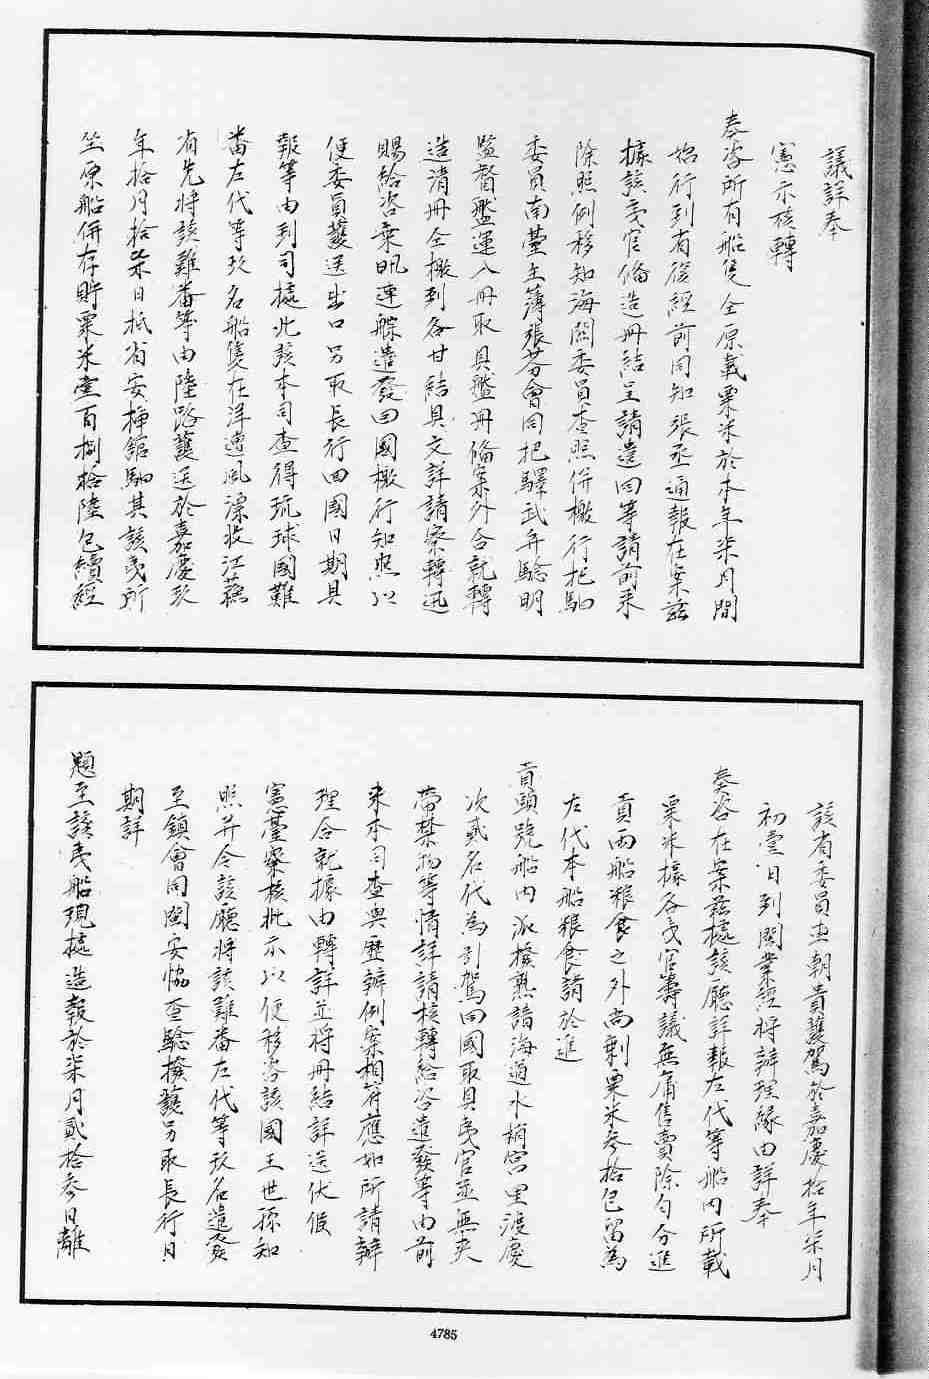 議詳奉
憲示核轉
奏咨所有船隻仝原載粟米於本年柒月間
始行到省後經前同知張丞通報在案茲
據該夷官俻造冊結呈請遣回等請前來
除照例移知海關委員查照併檄行把駐
委員南臺主簿張芬會同把驛武弁驗明
監督盤運入冊取具盤冊俻案外合就轉
造清冊仝檄到各甘結具文詳請察轉迅
賜給咨乘帆連䑸遣發回國檄行知照以
便委員護送出口另取長行回國日期具
報等由到司據此該本司查得琉球國難
番左代等玖名船隻在洋遭風漂收江蘇
省先將該難番等由陸路護送於嘉慶玖
年拾月拾柒日抵省安揷館馹其該夷所
坐原船併存貯粟米壹百捌拾陸包續經
該省委員王朝貴護駕於嘉慶拾年柒月
初壹日到閩業經將辦理緣由詳奉
奏咨在案茲據該廳詳報左代等船內所載
粟米據各夷官籌議無庸售賣除勻分進
貢兩船粮食之外尚剩粟米參拾包留為
左代本船粮食請於進
貢頭號船內派撥熟諳海道水梢宮里渡慶
次貳名代為引駕回國取具夷官並無夾
帶禁物等情詳請核轉給咨遣發等由前
來本司查與歷辦例案相符應如所請辦
理合就據由轉詳並將冊結詳送伏候
憲臺察核批示以便移咨該國王世孫知
照并令該廳將該難番左代等玖名遣發
至鎮會同閩安協查驗撥護另取長行日
期詳
題至該夷船現據造報於柒月貳拾參日離
4785